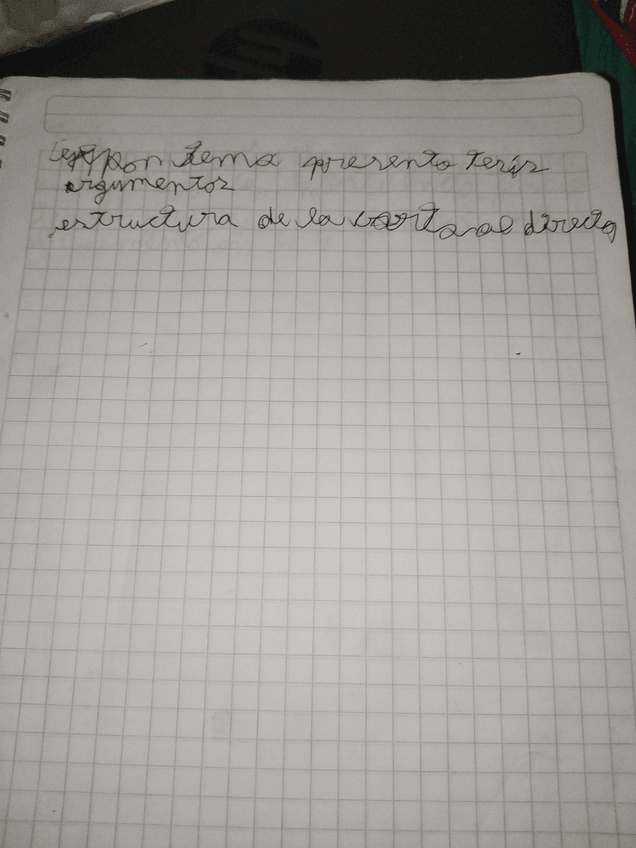 expon tema presento tesis
argumentos
estructura de la carta al directo